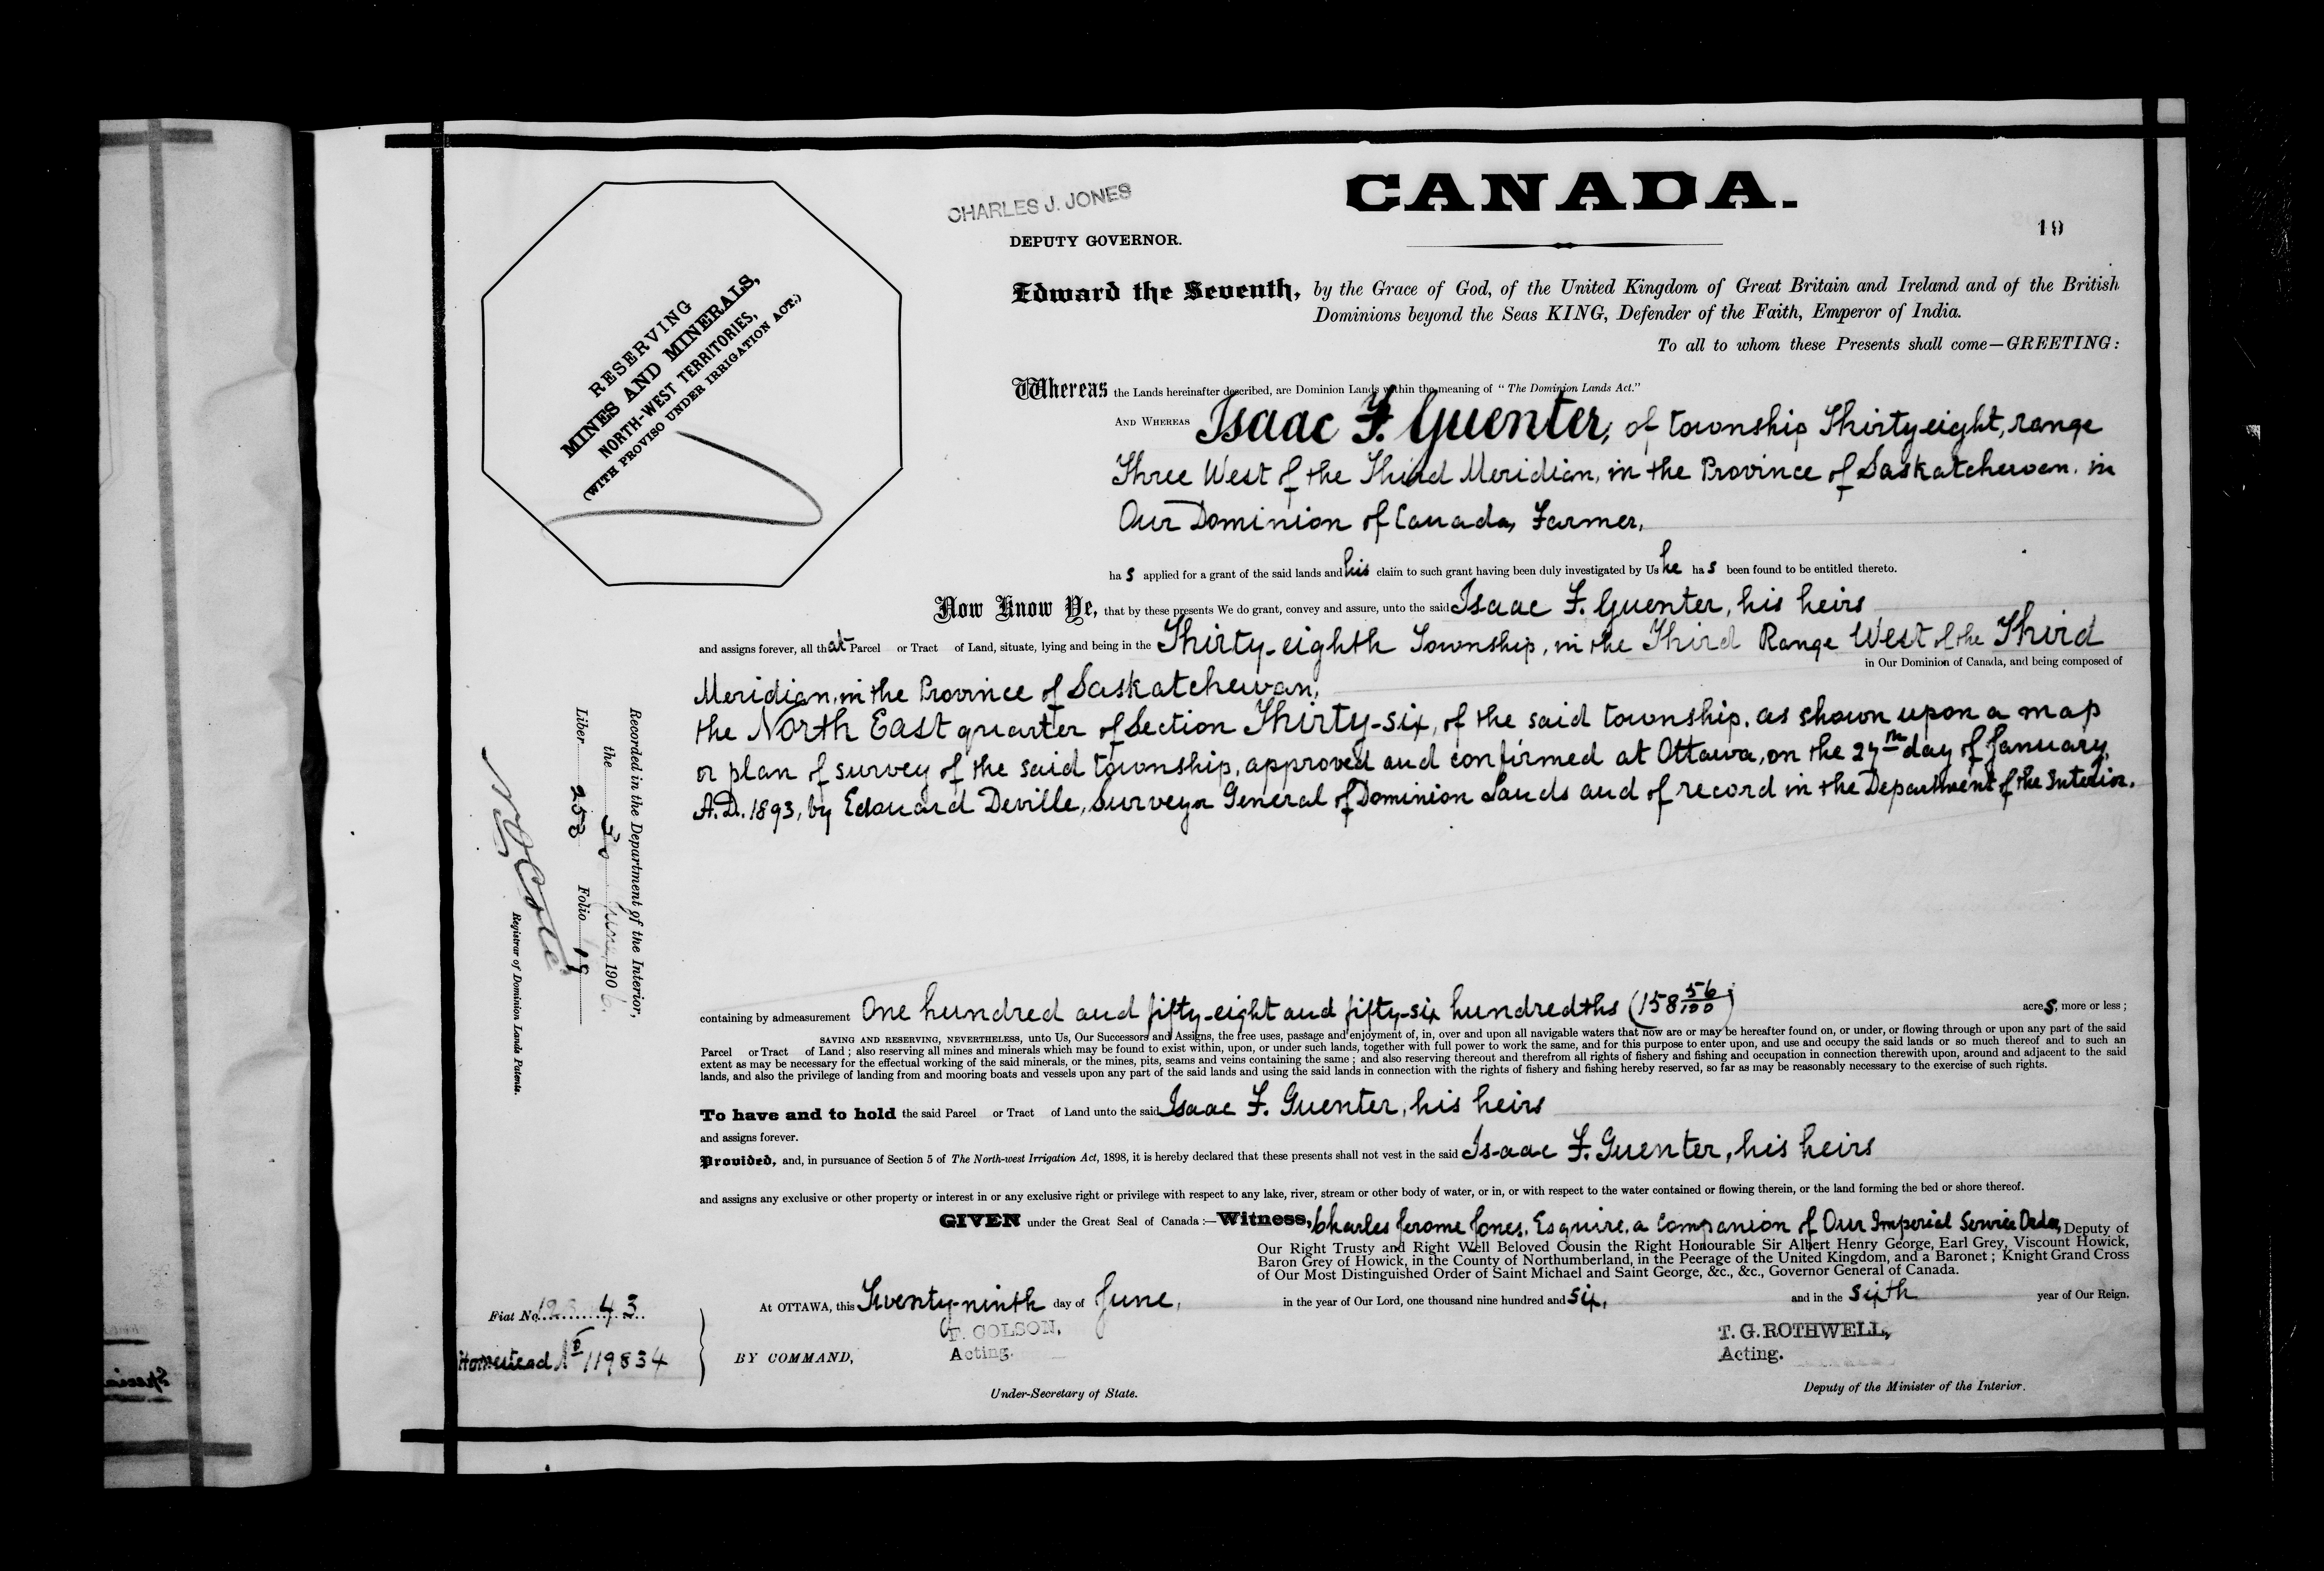 CANADA.
CHARLES J. JONES
DEPUTY GOVERNOR.
19
RESERVING
MINES AND MINERALS,
NORTH-WEST TERRITORIES,
(WITH PROVISO UNDER IRRIGATION ACT.)
Edward the Seventh, by the Grace of God, of the United Kingdom of Great Britain and Ireland and of the British
Dominions beyond the Seas KING, Defender of the Faith, Emperor of India.
To all to whom these Presents shall come—GREETING:
Whereas the Lands hereinafter described, are Dominion Lands within the meaning of "The Dominion Lands Act."
AND WHEREAS Isaac F. Guenter, of township Thirty eight, range
Three West of the Third Meridian, in the Province of Saskatchewan, in
Our Dominion of Canada, Farmer,
has applied for a grant of the said lands and his claim to such grant having been duly investigated by Us he has been found to be entitled thereto.
Now Know Ye, that by these presents We do grant, convey and assure, unto the said Isaac F. Guenter, his heirs
and assigns forever, all that Parcel or Tract of Land, situate, lying and being in the Thirty-eighth Township, in the Third Range West of the Third
in Our Dominion of Canada, and being composed of
Meridian, in the Province of Saskatchewan,
the North East quarter of Section Thirty-six, of the said township, as shown upon a map
or plan of survey of the said township, approved and confirmed at Ottawa, on the 27th day of January,
A.D. 1893, by Edouard Deville, Surveyor General of Dominion Lands and of record in the Department of the Interior.
Recorded in the Department of the Interior,
the 30 June 1906
Liber 258 Folio 19
Registrar of Dominion Lands Patents.
containing by admeasurement One hundred and fifty-eight and fifty-six hundredths (158 56/100) acres, more or less;
SAVING AND RESERVING, NEVERTHELESS, unto Us, Our Successors and Assigns, the free uses, passage and enjoyment of, in, over and upon all navigable waters that now are or may be hereafter found on, or under, or flowing through or upon any part of the said
Parcel or Tract of Land; also reserving all mines and minerals which may be found to exist within, upon, or under such lands, together with full power to work the same, and for this purpose to enter upon, and use and occupy the said lands or so much thereof and to such an
extent as may be necessary for the effectual working of the said minerals, or the mines, pits, seams and veins containing the same; and also reserving thereout and therefrom all rights of fishery and fishing and occupation in connection therewith upon, around and adjacent to the said
lands, and also the privilege of landing from and mooring boats and vessels upon any part of the said lands and using the said lands in connection with the rights of fishery and fishing hereby reserved, so far as may be reasonably necessary to the exercise of such rights.
To have and to hold the said Parcel or Tract of Land unto the said Isaac F. Guenter, his heirs
and assigns forever.
Provided, and, in pursuance of Section 5 of The North-west Irrigation Act, 1898, it is hereby declared that these presents shall not vest in the said Isaac F. Guenter, his heirs
and assigns any exclusive or other property or interest in or any exclusive right or privilege with respect to any lake, river, stream or other body of water, or in, or with respect to the water contained or flowing therein, or the land forming the bed or shore thereof.
GIVEN under the Great Seal of Canada:—Witness, Charles Jerome Jones, Esquire, a Companion of Our Imperial Service Order, Deputy of
Our Right Trusty and Right Well Beloved Cousin the Right Honourable Sir Albert Henry George, Earl Grey, Viscount Howick,
Baron Grey of Howick, in the County of Northumberland, in the Peerage of the United Kingdom, and a Baronet; Knight Grand Cross
of Our Most Distinguished Order of Saint Michael and Saint George, &c., &c., Governor General of Canada.
At OTTAWA, this Twenty-ninth day of June, in the year of Our Lord, one thousand nine hundred and six, and in the sixth year of Our Reign.
Fiat No. 12343
Homestead No 119834
BY COMMAND,
F. COLSON,
Acting.
Under-Secretary of State.
T. G. ROTHWELL,
Acting.
Deputy of the Minister of the Interior.